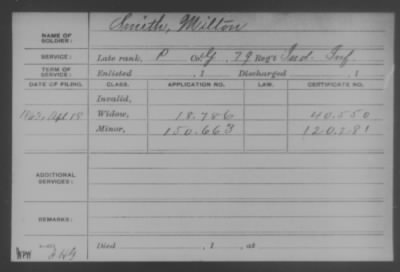 Smith, Milton
NAME OF SOLDIER:
SERVICE: Late rank, P Co. G, 79 Reg't Ind. Inf.
TERM OF SERVICE: Enlisted , 1 Discharged , 1
DATE OF FILING. CLASS. APPLICATION NO. LAW. CERTIFICATE NO.
Invalid,
1863, Apl 18 Widow, 18.786 40.550
Minor, 150.663 120.281
ADDITIONAL SERVICES:
REMARKS:
Died , 1 , at